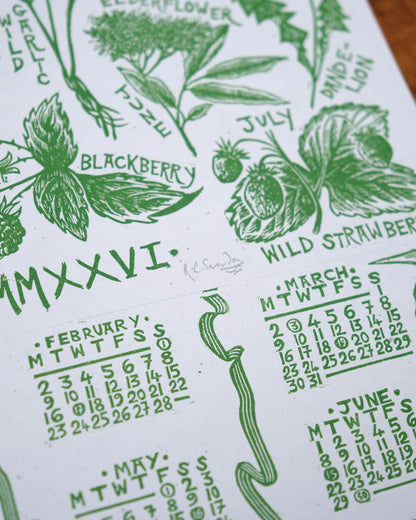 ELDERFLOWER
WILD
GARLIC
JUNE
DANDE-
LION
JULY
BLACKBERRY
WILD STRAWBER
MMXXVI.
FEBRUARY.
M T W T F S S
1
2 3 4 5 6 7 8
9 10 11 12 13 14 15
16 17 18 19 20 21 22
23 24 25 26 27 28
MARCH.
M T W T F S S
1
2 3 4 5 6 7 8
9 10 11 12 13 14 15
16 17 18 19 20 21 22
23 24 25 26 27 28 29
30 31
MAY.
M T W T F S S
1 2 3
JUNE.
M T W T F S
1 2 3 4 5
8 9 10 11 12
15 16 17 18
22 23 24 25
29 30